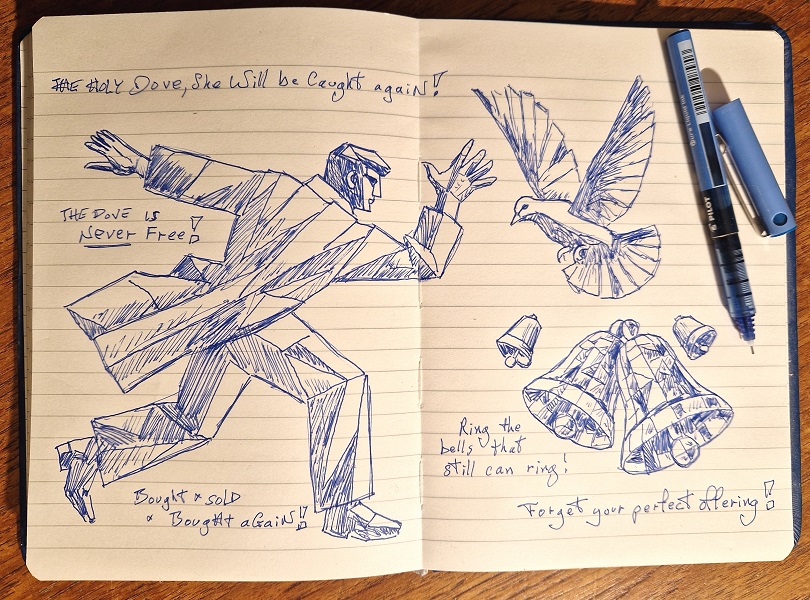 THE HOLY Dove, She Will be Caught again!
THE DOVE IS
Never Free!
Bought & SOLD
& Bought aGaiN!
Ring the
bells that
still can ring!
Forget your perfect offering!
PILOT